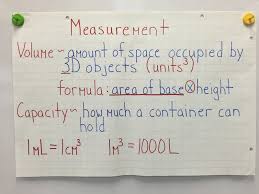 Measurement
Volume ~ amount of space occupied by
3D objects (units³)
formula: area of base ⊗ height
Capacity ~ how much a container can
hold
1mL = 1cm³ 1m³ = 1000L